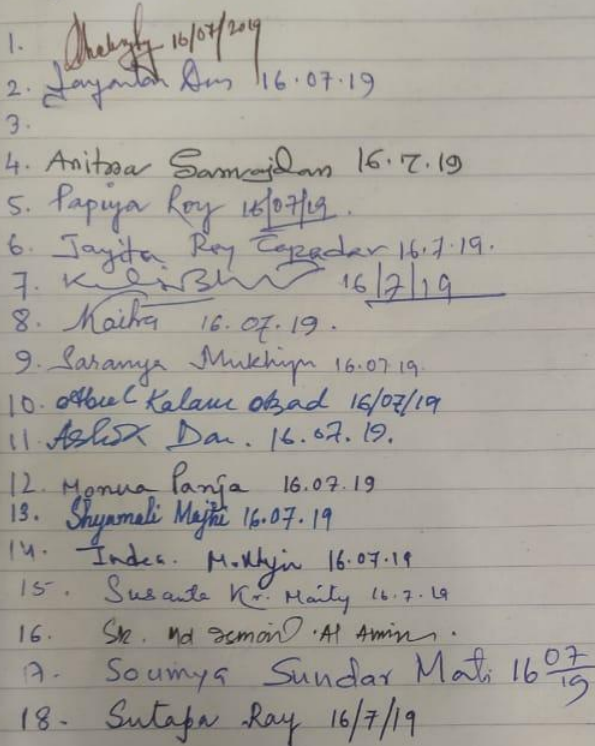 1. 16/07/2019
2. Jayanta Das 16.07.19
3.
4. Anitra Samajdar 16.7.19
5. Papiya Roy 16/07/19.
6. Jayita Roy Tapadar 16.7.19.
7. 16/7/19
8. 16.07.19.
9. Saranya 16.07.19
10. Kalam Azad 16/07/19
11. Ashok 16.07.19.
12. Monua Panja 16.07.19
13. Shyamali Majhi 16.07.19
14. 16.07.19
15. Susanta Kr. Maity 16.7.19
16. Sk. Md Al Amin.
17. Soumya Sundar Maiti 16 07/19
18. Sutapa Ray 16/7/19